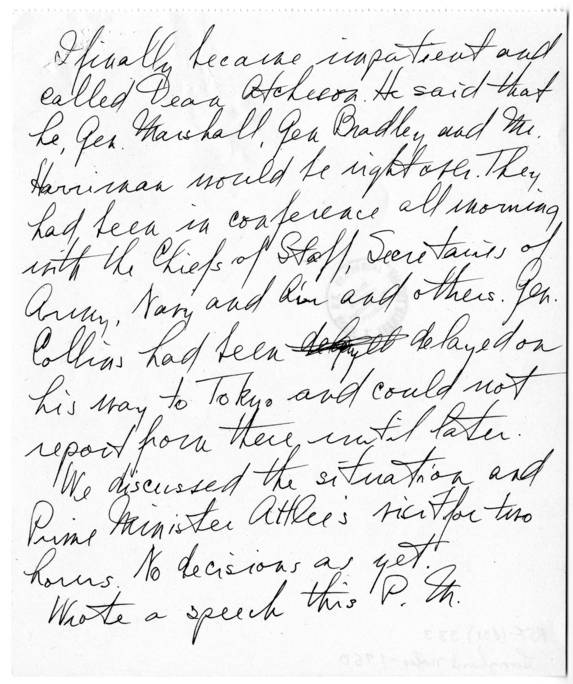 I finally became impatient and
called Dean Atcheson. He said that
he, Gen. Marshall, Gen Bradley and Mr.
Harriman would be right over. They
had been in conference all morning
with the Chiefs of Staff, Secretaries of
Army, Navy and Air and others. Gen.
Collins had been delayed on
his way to Tokyo and could not
report from there until later.
We discussed the situation and
Prime Minister Attlee's visit for two
hours. No decisions as yet.
Wrote a speech this P. M.